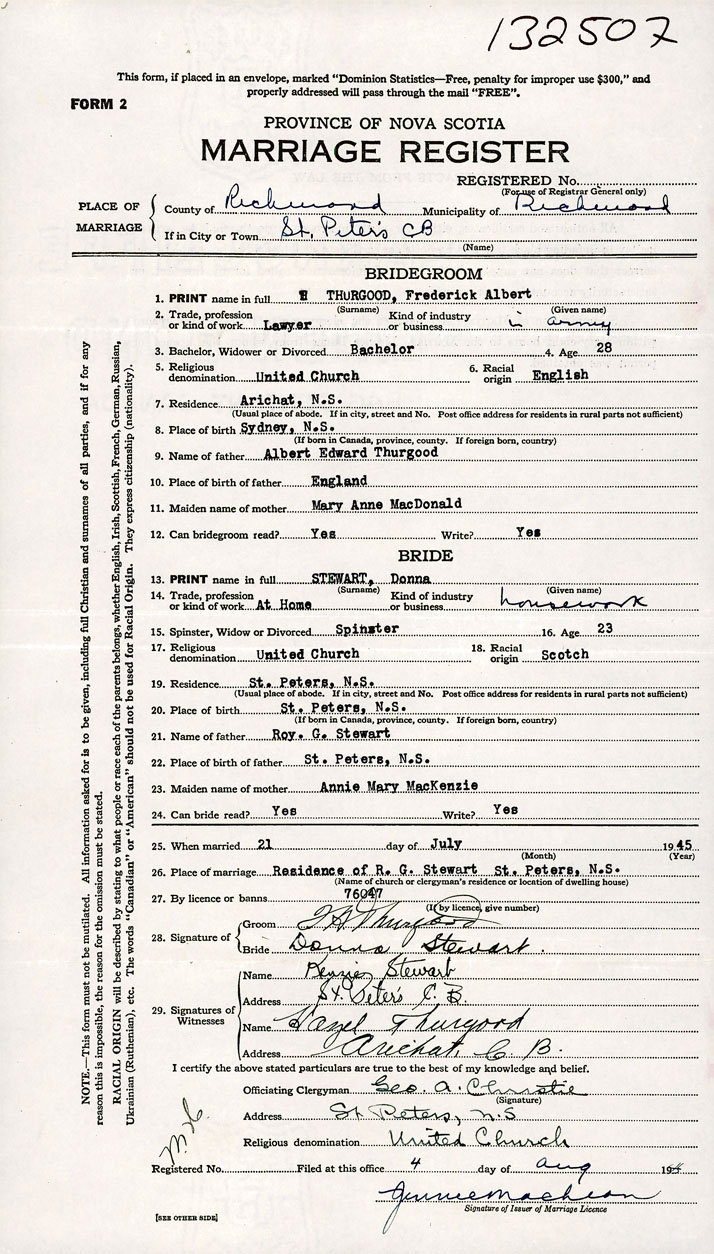 132507
This form, if placed in an envelope, marked "Dominion Statistics—Free, penalty for improper use $300," and
properly addressed will pass through the mail "FREE".
FORM 2
PROVINCE OF NOVA SCOTIA
MARRIAGE REGISTER
REGISTERED No.
(For use of Registrar General only)
PLACE OF MARRIAGE
County of Richmond Municipality of Richmond
If in City or Town St. Peter's CB
(Name)
BRIDEGROOM
1. PRINT name in full THURGOOD, Frederick Albert
(Surname) (Given name)
2. Trade, profession or kind of work Lawyer Kind of industry or business in army
3. Bachelor, Widower or Divorced Bachelor 4. Age 28
5. Religious denomination United Church 6. Racial origin English
7. Residence Arichat, N.S.
(Usual place of abode. If in city, street and No. Post office address for residents in rural parts not sufficient)
8. Place of birth Sydney, N.S.
(If born in Canada, province, county. If foreign born, country)
9. Name of father Albert Edward Thurgood
10. Place of birth of father England
11. Maiden name of mother Mary Anne MacDonald
12. Can bridegroom read? Yes Write? Yes
BRIDE
13. PRINT name in full STEWART, Donna
(Surname) (Given name)
14. Trade, profession or kind of work At Home Kind of industry or business housework
15. Spinster, Widow or Divorced Spinster 16. Age 23
17. Religious denomination United Church 18. Racial origin Scotch
19. Residence St. Peters, N.S.
(Usual place of abode. If in city, street and No. Post office address for residents in rural parts not sufficient)
20. Place of birth St. Peters, N.S.
(If born in Canada, province, county. If foreign born, country)
21. Name of father Roy. G. Stewart
22. Place of birth of father St. Peters, N.S.
23. Maiden name of mother Annie Mary MacKenzie
24. Can bride read? Yes Write? Yes
25. When married 21 day of July 1945
(Month) (Year)
26. Place of marriage Residence of R. G. Stewart St. Peters, N.S.
(Name of church or clergyman's residence or location of dwelling house)
27. By licence or banns 76047
(If by licence, give number)
28. Signature of
Groom F A Thurgood
Bride Donna Stewart.
29. Signatures of Witnesses
Name Kenzie Stewart
Address St. Peter's C.B.
Name Hazel Thurgood
Address Arichat, C.B.
I certify the above stated particulars are true to the best of my knowledge and belief.
Officiating Clergyman Geo. A. Christie
(Signature)
Address St. Peters, N.S
Religious denomination United Church
Registered No. Filed at this office 4 day of Aug 194
Jennie MacLean
Signature of Issuer of Marriage Licence
[SEE OTHER SIDE]
NOTE.—This form must not be mutilated. All information asked for is to be given, including full Christian and surnames of all parties, and if for any
reason this is impossible, the reason for the omission must be stated.
RACIAL ORIGIN will be described by stating to what people or race each of the parents belongs, whether English, Irish, Scottish, French, German, Russian,
Ukrainian (Ruthenian), etc. The words "Canadian" or "American" should not be used for Racial Origin. They express citizenship (nationality).